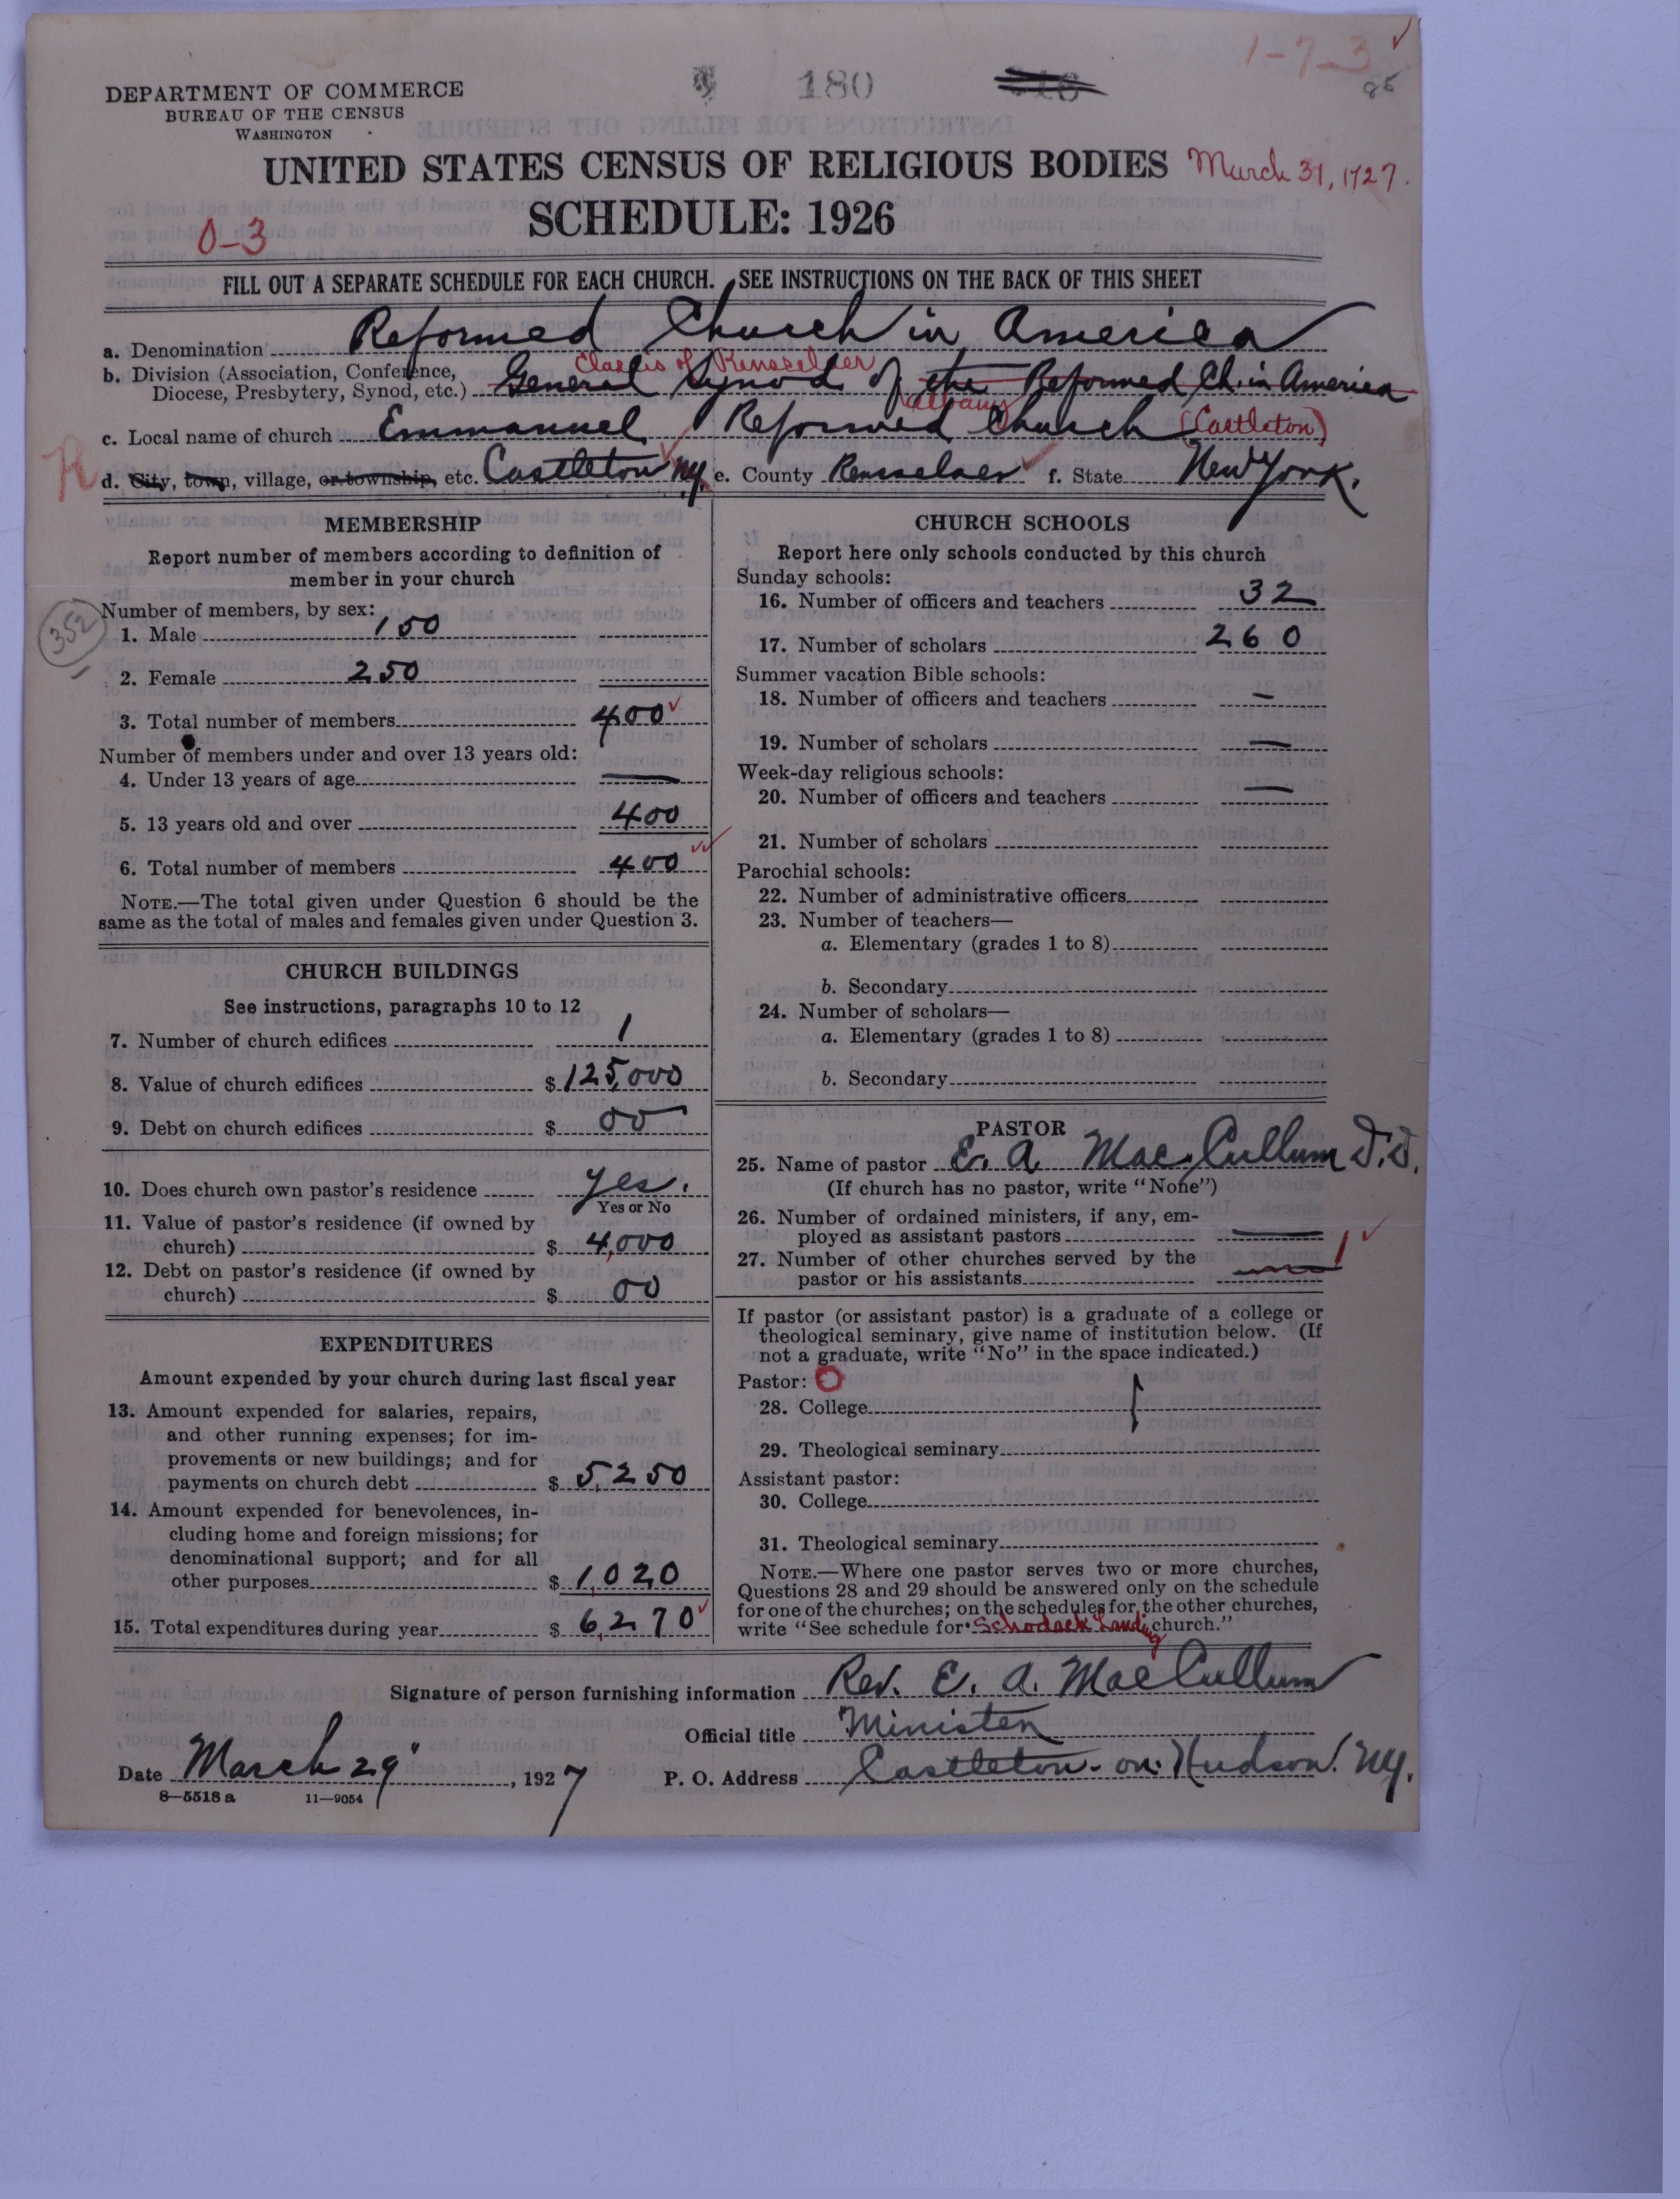 1-7-3
85
DEPARTMENT OF COMMERCE
BUREAU OF THE CENSUS
WASHINGTON
180
UNITED STATES CENSUS OF RELIGIOUS BODIES March 31, 1927.
SCHEDULE: 1926
0-3
FILL OUT A SEPARATE SCHEDULE FOR EACH CHURCH. SEE INSTRUCTIONS ON THE BACK OF THIS SHEET
a. Denomination Reformed Church in America
Classis of Rensselaer
b. Division (Association, Conference,
Diocese, Presbytery, Synod, etc.) General Synod of the Reformed Ch. in America
Albany
c. Local name of church Emmanuel Reformed Church (Castleton)
R
d. City, town, village, or township, etc. Castleton N.Y. e. County Rensselaer f. State New York.
MEMBERSHIP
Report number of members according to definition of
member in your church
Number of members, by sex:
352
1. Male 150
2. Female 250
3. Total number of members 400
Number of members under and over 13 years old:
4. Under 13 years of age —
5. 13 years old and over 400
6. Total number of members 400
NOTE.—The total given under Question 6 should be the
same as the total of males and females given under Question 3.
CHURCH BUILDINGS
See instructions, paragraphs 10 to 12
7. Number of church edifices 1
8. Value of church edifices $ 125,000
9. Debt on church edifices $ 00
10. Does church own pastor's residence Yes.
Yes or No
11. Value of pastor's residence (if owned by
church) $ 4,000
12. Debt on pastor's residence (if owned by
church) $ 00
EXPENDITURES
Amount expended by your church during last fiscal year
13. Amount expended for salaries, repairs,
and other running expenses; for im-
provements or new buildings; and for
payments on church debt $ 5,250
14. Amount expended for benevolences, in-
cluding home and foreign missions; for
denominational support; and for all
other purposes $ 1,020
15. Total expenditures during year $ 6,270
CHURCH SCHOOLS
Report here only schools conducted by this church
Sunday schools:
16. Number of officers and teachers 32
17. Number of scholars 260
Summer vacation Bible schools:
18. Number of officers and teachers —
19. Number of scholars —
Week-day religious schools:
20. Number of officers and teachers —
21. Number of scholars
Parochial schools:
22. Number of administrative officers
23. Number of teachers—
a. Elementary (grades 1 to 8)
b. Secondary
24. Number of scholars—
a. Elementary (grades 1 to 8)
b. Secondary
PASTOR
25. Name of pastor E. A. MacCullum D.D.
(If church has no pastor, write "None")
26. Number of ordained ministers, if any, em-
ployed as assistant pastors —
27. Number of other churches served by the
pastor or his assistants — 1
If pastor (or assistant pastor) is a graduate of a college or
theological seminary, give name of institution below. (If
not a graduate, write "No" in the space indicated.)
Pastor:
28. College
29. Theological seminary
Assistant pastor:
30. College
31. Theological seminary
NOTE.—Where one pastor serves two or more churches,
Questions 28 and 29 should be answered only on the schedule
for one of the churches; on the schedules for the other churches,
write "See schedule for Schodack Landing church."
Signature of person furnishing information Rev. E. A. MacCullum
Official title Minister
Date March 29", 1927 P. O. Address Castleton-on-Hudson. N.Y.
8—5518 a 11—9054